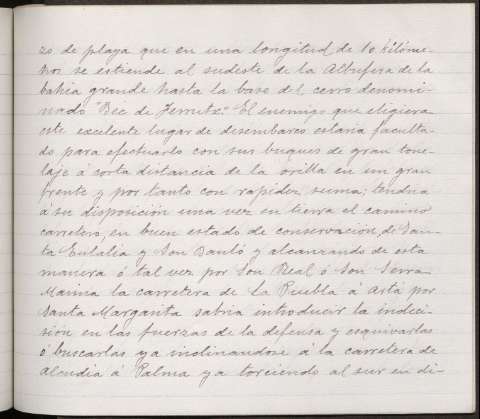 zo de playa que en una longitud de 10 kilóme-
tros se estiende al sudeste de la Albufera de la
bahía grande hasta la base del cerro denomi-
nado "Bec de Ferrutx". El enemigo que eligiera
este excelente lugar de desembarco estaría faculta-
do para efectuarlo con sus buques de gran tone-
laje á corta distancia de la orilla en un gran
frente y por tanto con rapidez suma: tendría
á su disposición una vez en tierra el camino
carretero, en buen estado de conservación, de San-
ta Eulalia y Son Bauló y alcanzando de esta
manera ó tal vez por Son Real ó Son Serra
Marina la carretera de La Puebla á Artá por
Santa Margarita sabría introducir la indeci-
sión en las fuerzas de la defensa y esquivarlas
ó buscarlas ya inclinandose á la carretera de
Alcudia á Palma ya torciendo al sur en di-